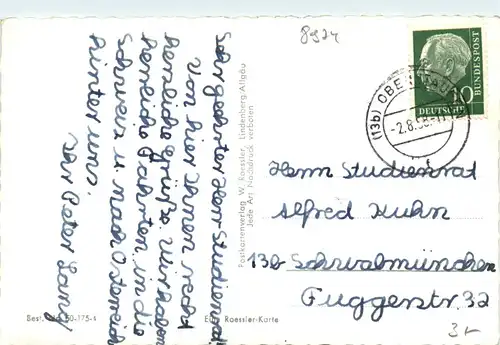 8924
Sehr geehrter Herr Studienrat
Von hier Ihnen recht
herzliche Grüße. Wir haben
herrliche Fahrten in die
Schweiz u. nach Österreich
hinter uns.
Ihr Peter
Postkartenverlag W. Roessler, Lindenberg/Allgäu
Jede Art Nachdruck verboten
Best. 50-175-t
Eine Roessler-Karte
(13b) OBE
-2.8.56.-11
10
DEUTSCHE
BUNDESPOST
Herrn Studienrat
Alfred Kuhn
13b Schwabmünchen
Fuggerstr. 32